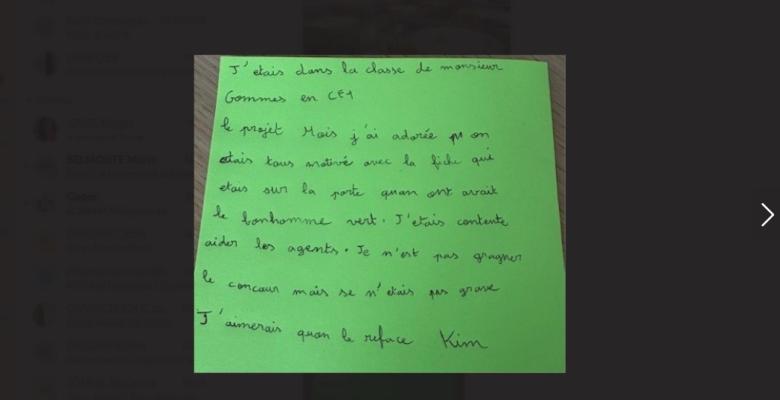 J'etais dans la classe de monsieur
Gommes en CE1
le projet Mais j'ai adorée on
etais tous motivé avec la fiche qui
etais sur la porte quan ont avait
le bonhomme vert. J'etais contente
aider les agents. Je n'est pas gragner
le concour mais se n'etais pas grave
J'aimerais quon le reface Kim